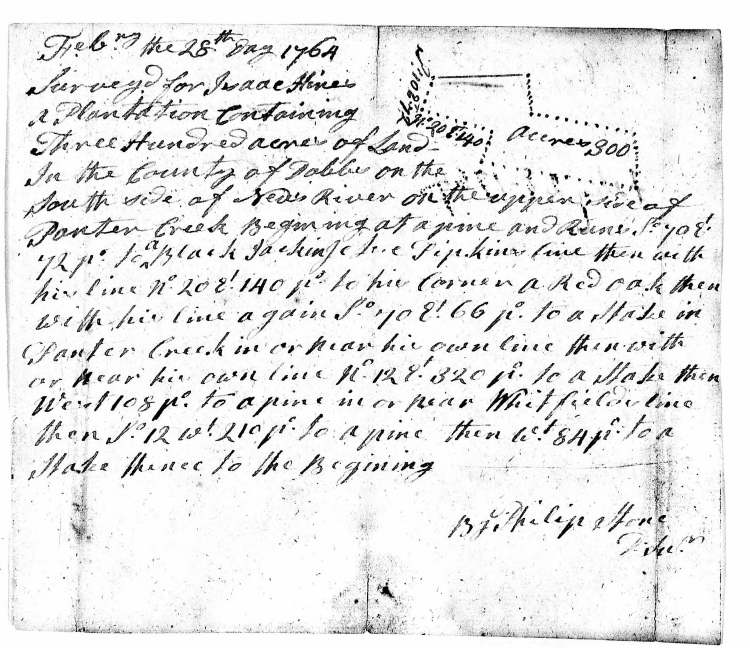 Febry the 28th day 1764
Surveyd for Isaac Hines
a Plantation Containing
Three Hundred acres of Land
In the County of Dobbs on the
South side of News River on the upper side of
Panter Creek Begining at a pine and Runs So 70 Et
72 po to a Black Jack in Tipkins line then with
his line No 20 Et 140 po to his Corner a Red oak then
with his line again So 70 Et 66 po to a Stake in
Panter Creek in or near his own line then with
or near his own line No 12 Et 320 po to a Stake then
West 108 po to a pine in or near Whitfields line
then So 12 Wt 210 po to a pine then Wt 84 po to a
Stake thence to the Begining
By Philip
accres 300
No 20 Et 140